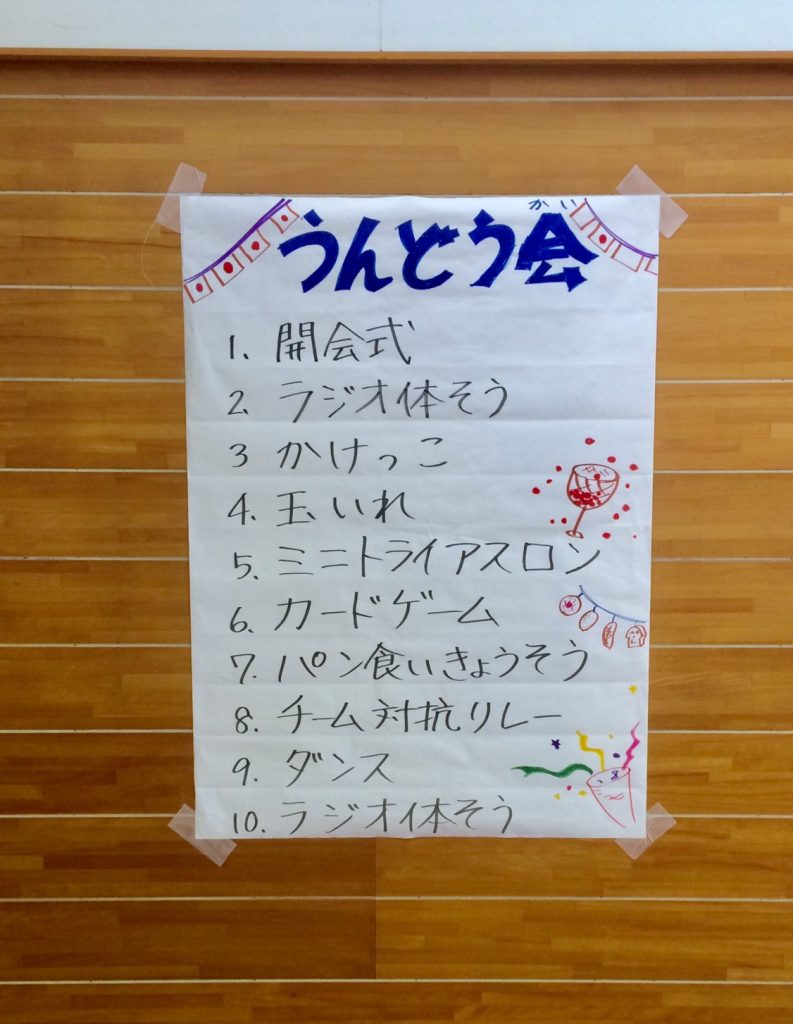 かい
うんどう会
1. 開会式
2. ラジオ体そう
3 かけっこ
4. 玉いれ
5. ミニトライアスロン
6. カードゲーム
7. パン食いきょうそう
8. チーム対抗リレー
9. ダンス
10. ラジオ体そう